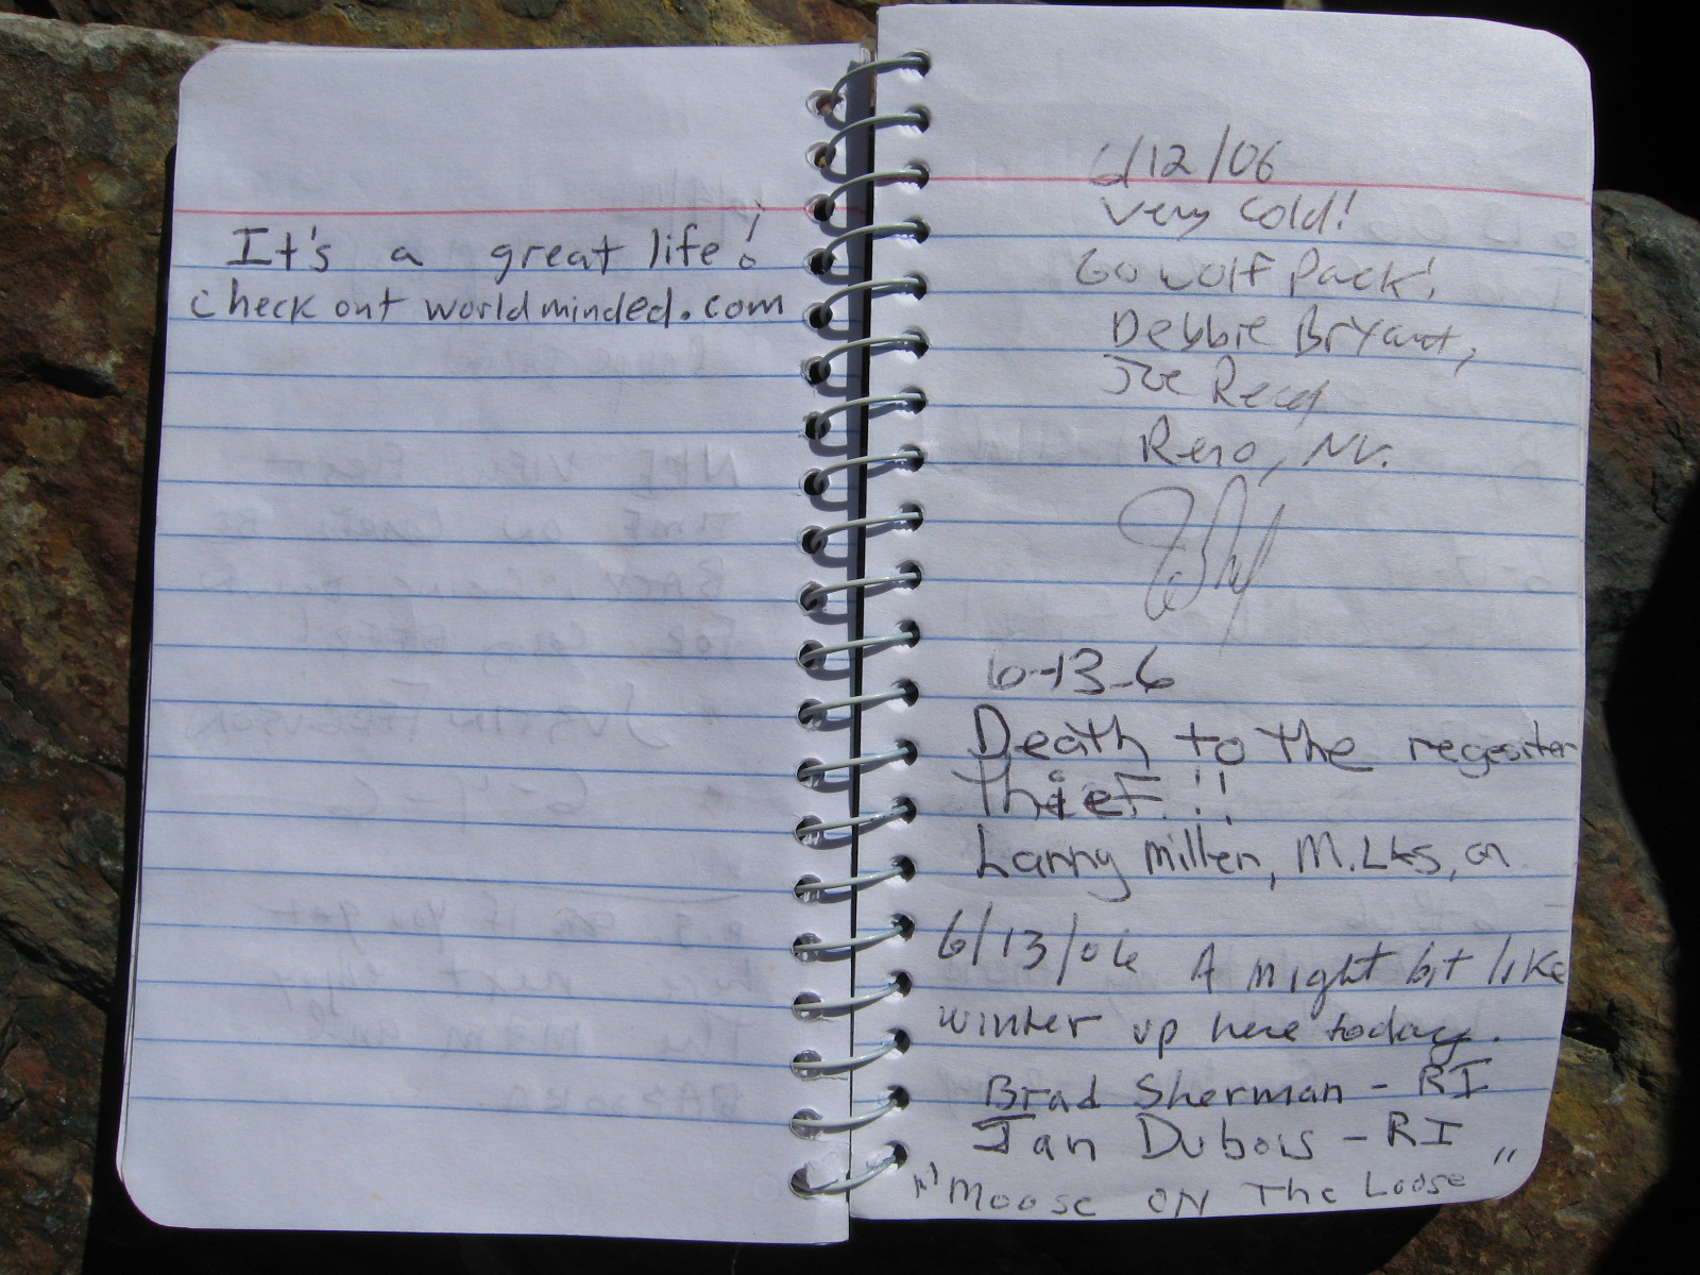 It's a great life!
check out worldminded.com
6/12/06
very cold!
Go wolf Pack!
Debbie Bryant,
Joe Reed
Reno, NV.
6-13-6
Death to the regesiter
thief!!
Larry Miller, M.Lks, CA
6/13/06 A might bit like
winter up here today.
Brad Sherman - RI
Jan Dubois - RI
"Moose ON The Loose"